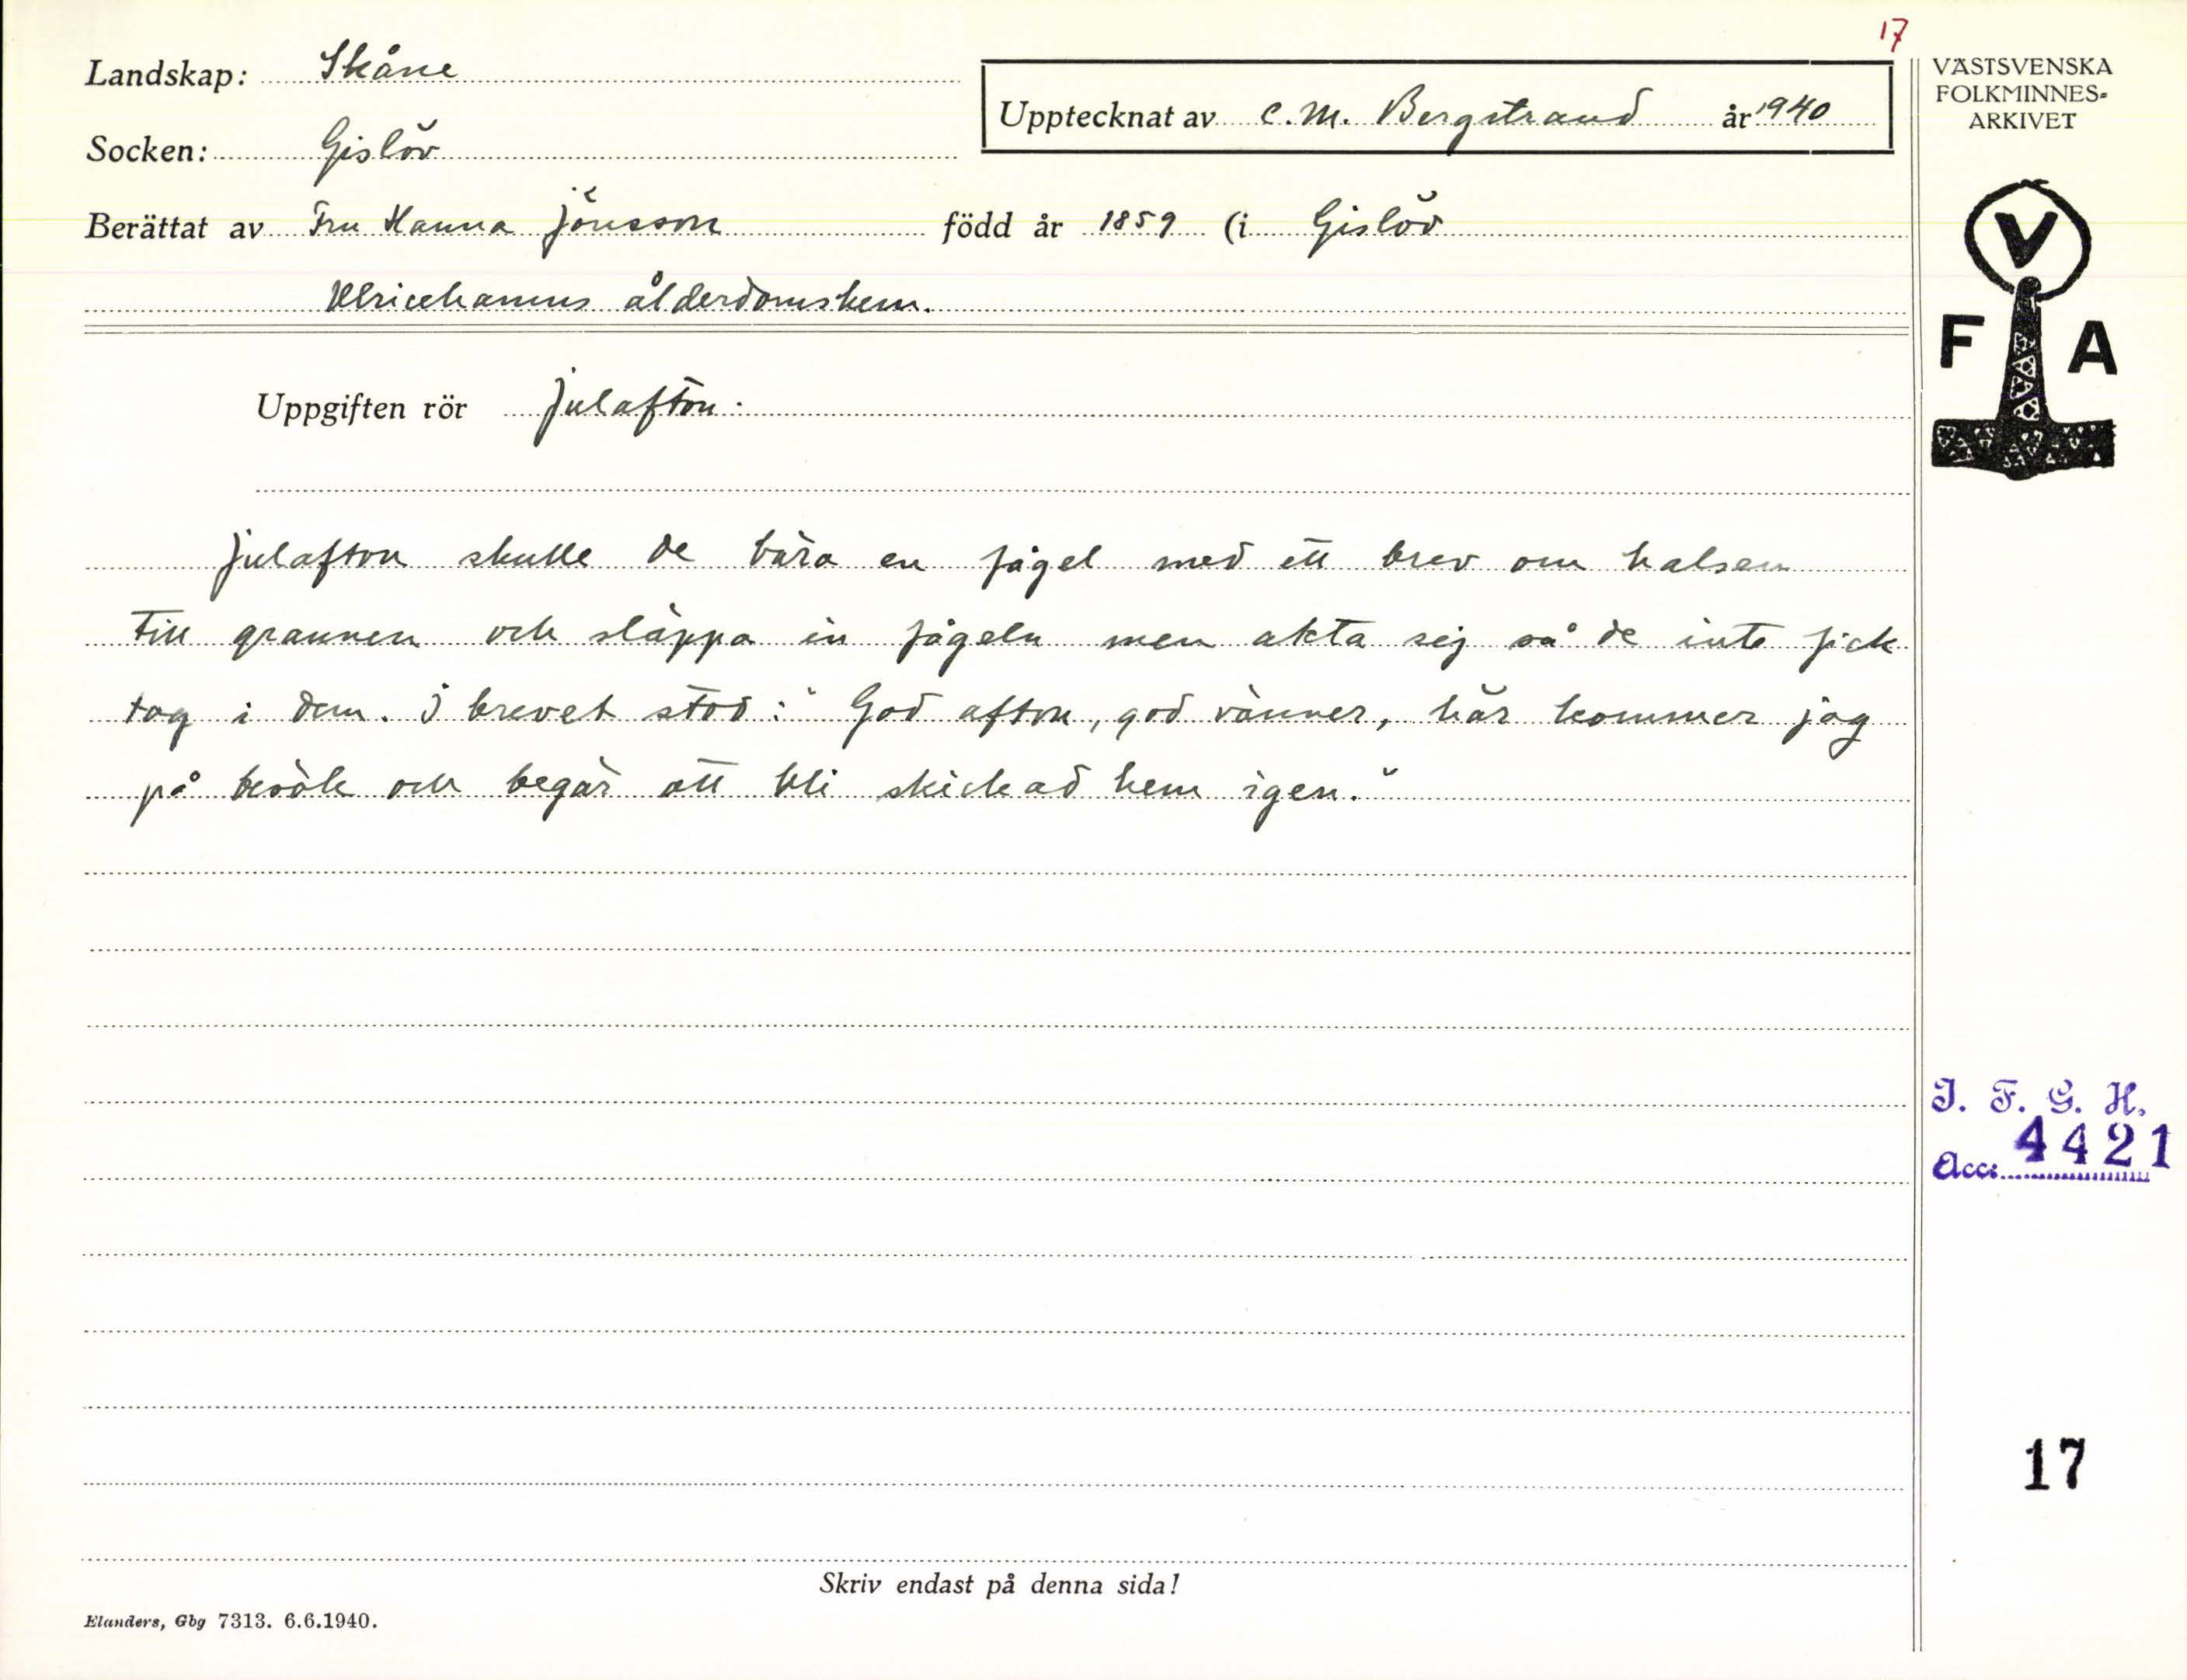 17
Landskap: Skåne
Upptecknat av C. M. Bergstrand år 1940
Socken: Gislöv
Berättat av Fru Hanna Jönsson född år 1859 (i Gislöv
Ulricehamns ålderdomshem.
VÄSTSVENSKA
FOLKMINNES-
ARKIVET
V
F A
Uppgiften rör Julafton.
Julafton skulle de bära en fågel med ett brev om halsen
till grannen och släppa in fågeln men akta sej så de inte fick
tag i dem. I brevet stod: "God afton, god vänner, här kommer jag
på besök och begär att bli skickad hem igen."
I. F. G. H.
Acc. 4421
17
Skriv endast på denna sida!
Elanders, Gbg 7313. 6.6.1940.